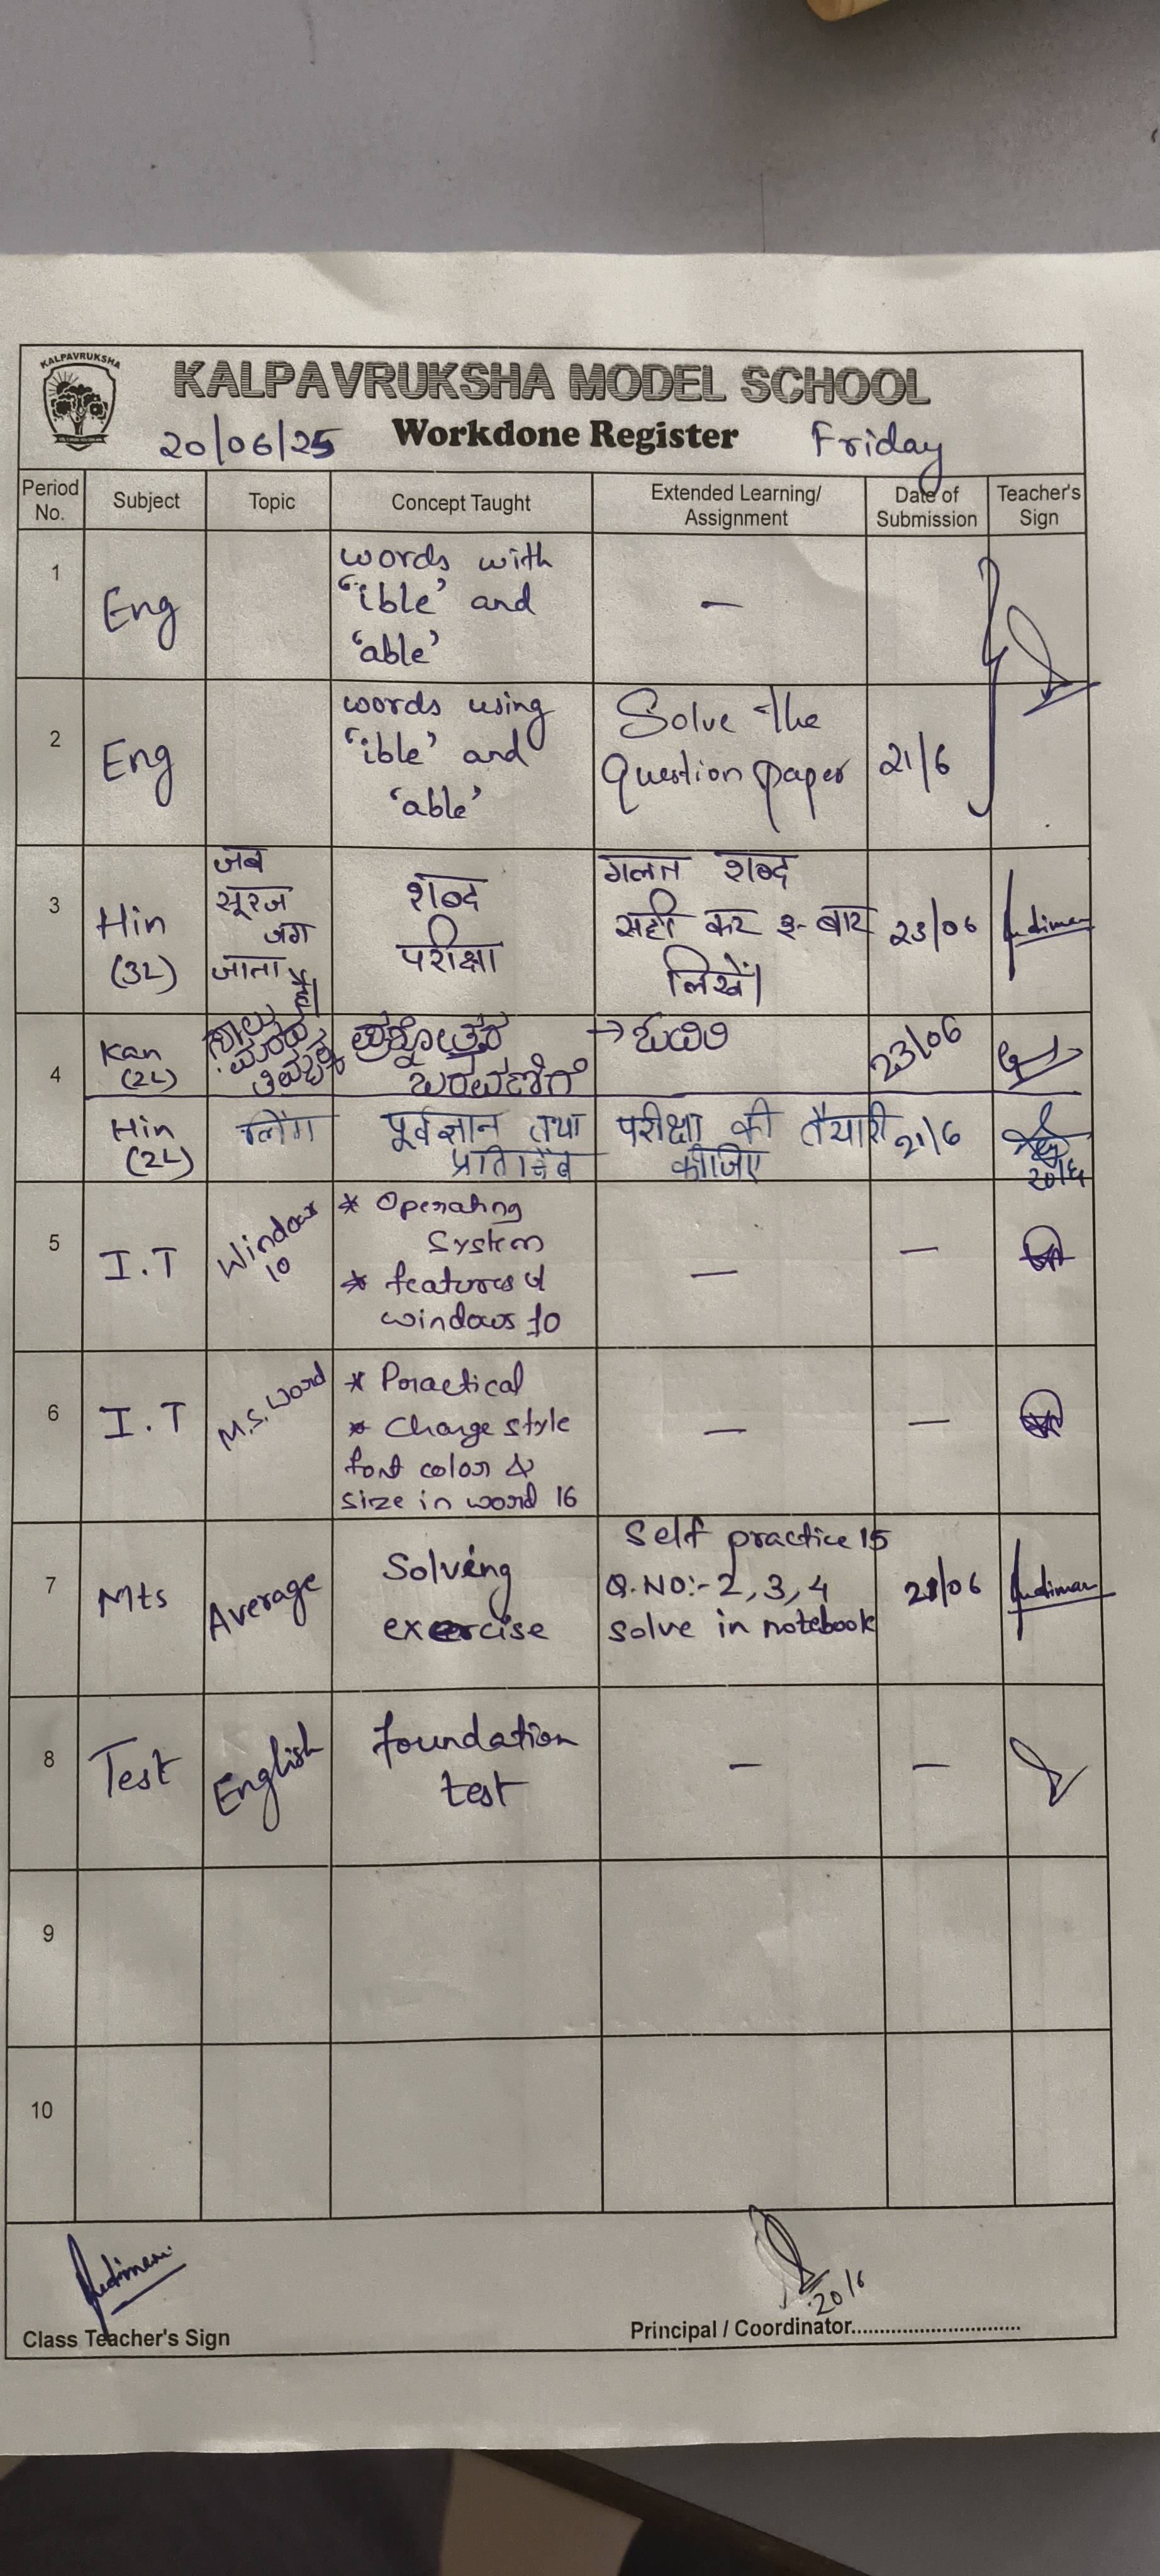 KALPAVRUKSHA
KALPAVRUKSHA MODEL SCHOOL
20/06/25 Workdone Register Friday
Period No. Subject Topic Concept Taught Extended Learning/ Assignment Date of Submission Teacher's Sign
1 Eng words with
'ible' and
'able' —
2 Eng words using
'ible' and
'able' Solve the
Question paper 21/6
3 Hin
(3L) जब
सूरज
जग
जाता है। शब्द
परीक्षा गलत शब्द
सही कर ३- बार
लिखें। 23/06
4 Kan
(2L) ಪ್ರಶ್ನೋತ್ತರ
ಬರವಣಿಗೆ → ಓದಿರಿ 23/06
Hin
(2L) लिंग पूर्वज्ञान तथा परीक्षा की तैयारी
कीजिए 21/6
20/6
5 I.T Windows
10 * Operating
System
* features of
windows 10 — —
6 I.T M.S. Word * Practical
* Change style
font color &
size in word 16 — —
7 Mts Average Solving
exercise Self practice 15
Q.NO:- 2, 3, 4
solve in notebook 21/06
8 Test English foundation
test — —
9
10
20/6
Class Teacher's Sign Principal / Coordinator..............................